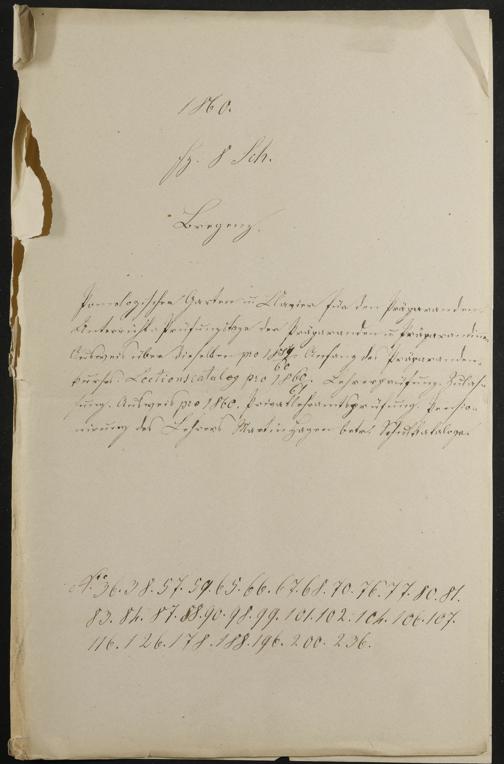 1860.
Fz. 8 Sch.
Bregenz.
Pomologischer Garten u. Clavier für den Präparanden-
Unterricht. Prüfungstage der Präparanden u. Präparandinen.
Ausweis über dieselben pro 1859/60. Anfang des Präparanden-
kurses. Lectionscatalog pro 1860/61. Lehrerprüfung. Zulas-
sung. Ausweis pro 1860. Privatlehramtsprüfung. Pensio-
nirung des Lehrers Martin betr. Schulkataloge.
No. 36. 38. 57. 59. 65. 66. 67. 68. 70. 76. 77. 80. 81.
83. 84. 87. 88. 90. 98. 99. 101. 102. 104. 106. 107.
116. 126. 178. 188. 196. 200. 236.